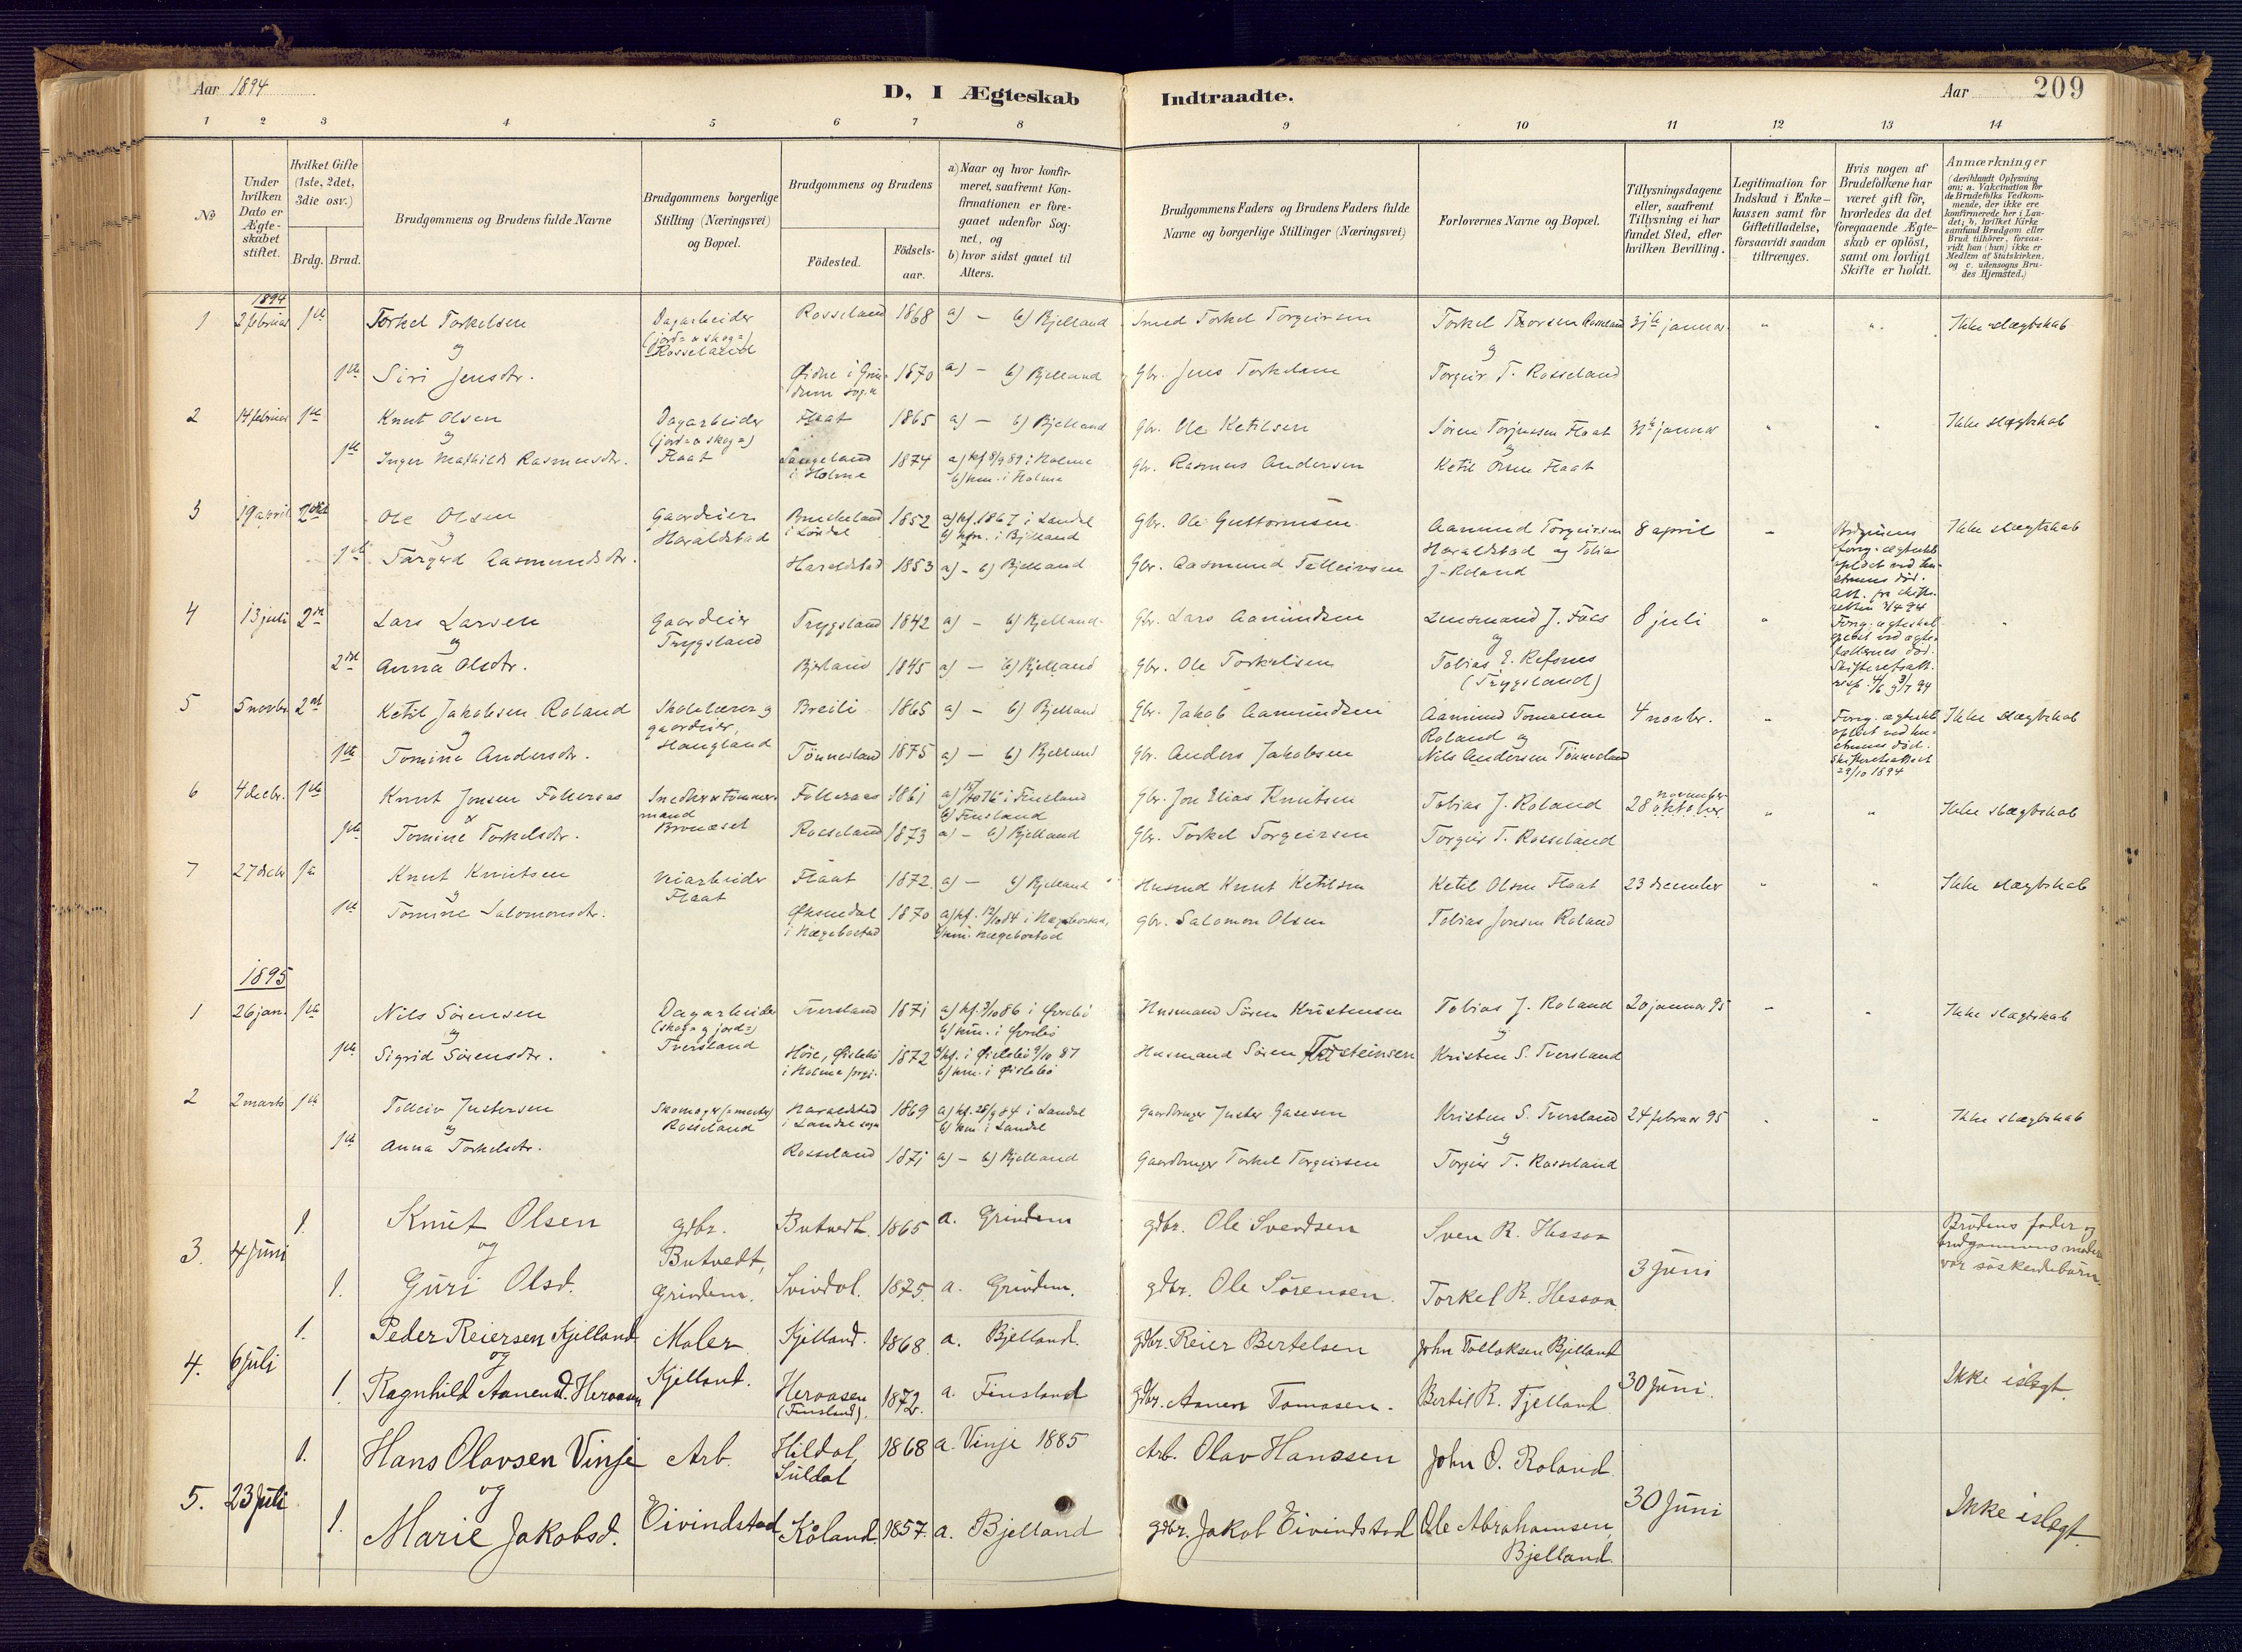 Aar 1894
D, I Ægteskab
Indtraadte.
Aar
209
1 2 3 4 5 6 7 8 9 10 11 12 13 14
No
Under hvilken Dato er Ægte-skabet stiftet.
Hvilket Gifte (1ste, 2det, 3die osv.)
Brdg. Brud.
Brudgommens og Brudens fulde Navne
Brudgommens borgerlige Stilling (Næringsvei) og Bopæl.
Brudgommens og Brudens
Födested.
Födsels-aar.
a) Naar og hvor konfir-
meret, saafremt Kon-
firmationen er fore-
gaaet udenfor Sog-
net, og
b) hvor sidst gaaet til
Alters.
Brudgommens Faders og Brudens Faders fulde
Navne og borgerlige Stillinger (Næringsvei)
Forlovernes Navne og Bopæl.
Tillysningsdagene
eller, saafremt
Tillysning ei har
fundet Sted, efter
hvilken Bevilling.
Legitimation for
Indskud i Enke-
kassen samt for
Giftetilladelse,
forsaavidt saadan
tiltrænges.
Hvis nogen af
Brudefolkene har
været gift för,
hvorledes da det
foregaaende Ægte-
skab er oplöst,
samt om lovligt
Skifte er holdt.
Anmærkninger
(deriblandt Oplysning
om: a. Vakcination for
de Brudefolks Vedkom-
mende, der ikke ere
konfirmerede her i Lan-
det; b. hvilket Kirke-
samfund Brudgom eller
Brud tilhörer, forsaa-
vidt han (hun) ikke er
Medlem af Statskirken,
og c. udensogns Bru-
des Hjemsted.)
1894
1 2 februar 1ste Torkel Torkelsen Dagarbeider Rosseland 1868 a) – b) Bjelland Smed Torkel Torgeirsen Torkel Thorsen Rosseland 31te januar " " Ikke slægtskab
og (jord= & skog=) Rosseland og
1ste Siri Jensdtr. Øidne i Grin-dum sogn 1870 a) – b) Bjelland Gbr. Jens Torkelsen Torgeir T. Rosseland
2 14 februar 1ste Knut Olsen Dagarbeider Flaat 1865 a) – b) Bjelland Gbr. Ole Ketilsen Søren Torjussen Flaat 31te januar " " Ikke slægtskab
og (jord= & skog=) og
1ste Inger Mathilde Rasmusdtr. Flaat Langeland i Holme 1874 a) kf 8/9 89 i Holme b) km. i Holme Gbr. Rasmus Andersen Ketil Olsen Flaat
3 19 april 2det Ole Olsen Gaardeier Haraldstad i Løndal 1852 a) kf. 1867 i Løndal b) km. i Bjelland Gbr. Ole Guttormsen Aamund Torgeirsen 8 april – Brdgmens Ikke slægtskab
og Haraldstad og Tobias forrig. ægteskb
1ste Torgerd Aasmundsdtr. Haraldstad 1853 a) – b) Bjelland Gbr. Aasmund Tellevsen J. Roland opløst ved hu-
struens død.
Att. fra skifte-
retten 3/4 94
4 13 juli 2det Lars Larsen Gaardeier Trygsland 1842 a) – b) Bjelland Gbr. Lars Aamundsen Lensmand J. Foss 8 juli " Forrig. ægteskab "
og Trygsland og opløst ved ægte-
2det Anna Olsdtr. Bjelland 1845 a) – b) Bjelland Gbr. Ole Torkelsen Tobias E. Refsnes fællernes død.
(Trygsland) Skifteretsatt.
5 5 novbr. 2det Ketil Jakobsen Roland Skolelærer og Breili 1865 a) – b) Bjelland Gbr. Jakob Aamundsen Aamund Tomassen 4 novbr. " Forrig. ægteskb Ikke slægtskab
og gaardeier, Roland og opløst ved hu-
1ste Tomine Andersdtr. Haugland Tønnesland 1875 a) – b) Bjelland Gbr. Anders Jakobsen Nils Andersen Tønnesland struens død.
Skifteretsattest
29/10 1894
6 4 decbr. 1ste Knut Jonsen Folleraas Snedker & tømmer-mand Folleraas 1861 a) 15/10 76 i Finsland b) Finsland Gbr. Jon Elias Knutsen Tobias J. Roland november 28 oktober " " Ikke slægtskab
&
1ste Tomine Torkelsdtr. Rosseland 1873 a) – b) Bjelland Gbr. Torkel Torgeirsen Torgeir T. Rosseland
7 27 decbr 1ste Knut Knutsen Veiarbeider Flaat 1872 a) – b) Bjelland Husmd Knut Ketilsen Ketil Olsen Flaat 23 december " " Ikke slægtskab
og Flaat
1ste Tomine Salomonsdtr. Øksendal i Hægebostad 1870 a) kf. 12/10 84 i Hægebostad, b) km. Hægebostad Gbr. Salomon Olsen Tobias Jonsen Roland
1895
1 26 jan. 1ste Nils Sørensen Dagarbeider Tversland 1871 a) kf. 3/10 86 i Øvrebø b) km. i Øvrebø Husmand Søren Kristensen Tobias J. Roland 20 januar 95 – " Ikke slægtskab
og (skog= og jord=) og
1ste Sigrid Sørensdtr. Tversland Høie, Øislebø i Holme prgj. 1872 a) kf. i Øislebø 9/10 87 b) km. i Øislebø Husmand Søren Torsteinsen Kristen S. Tversland
2 2 marts 1ste Tolleiv Justersen Skomager (=mester) Haraldstad i Landal sogn 1869 a) kf. 28/9 84 i Landal b) km i Landal Gaardbruger Juster Gasesen Kristen S. Tversland 24 februar 95 " " Ikke slægtskab
og Rosseland og
1ste Anna Torkelsdtr. Rosseland 1871 a) – b) Bjelland Gaardbruger Torkel Torgeirsen Torgeir T. Rosseland
3. 4 Juni 1. Knut Olsen gdbr. Butvedt. 1865 a. Grindem gdbr. Ole Svendsen Sven R. Hessaa 3 Juni Brudens fader og
og Butvedt, brudgommens moder
1. Guri Olsd. Grindem. Svindal. 1875. a. Grindem. gdbr. Ole Sørensen. Torkel R. Hessaa var søskendebørn.
4. 6 juli 1. Peder Reiersen Kjelland Maler Kjelland. 1868. a. Bjelland. gdbr. Reier Bertelsen John Tollaksen Bjelland 30 Juni. Ikke i slegt.
og Kjelland.
1. Ragnhild Aanensd. Heraasen Heraasen (Finsland). 1872. a. Finsland gdbr. Aanen Tomasen. Bertil R. Fjelland
5. 23 Juli 1. Hans Olavsen Vinje Arb. Hildal, Suldal 1868 a. Vinje 1885 Arb. Olav Hanssen John O. Roland. 30 Juni Ikke i slegt.
og
1. Marie Jakobsd. Eivindstad Roland. 1857. a. Bjelland gdbr. Jakob Eivindstad Ole Abrahamsen, Bjelland.